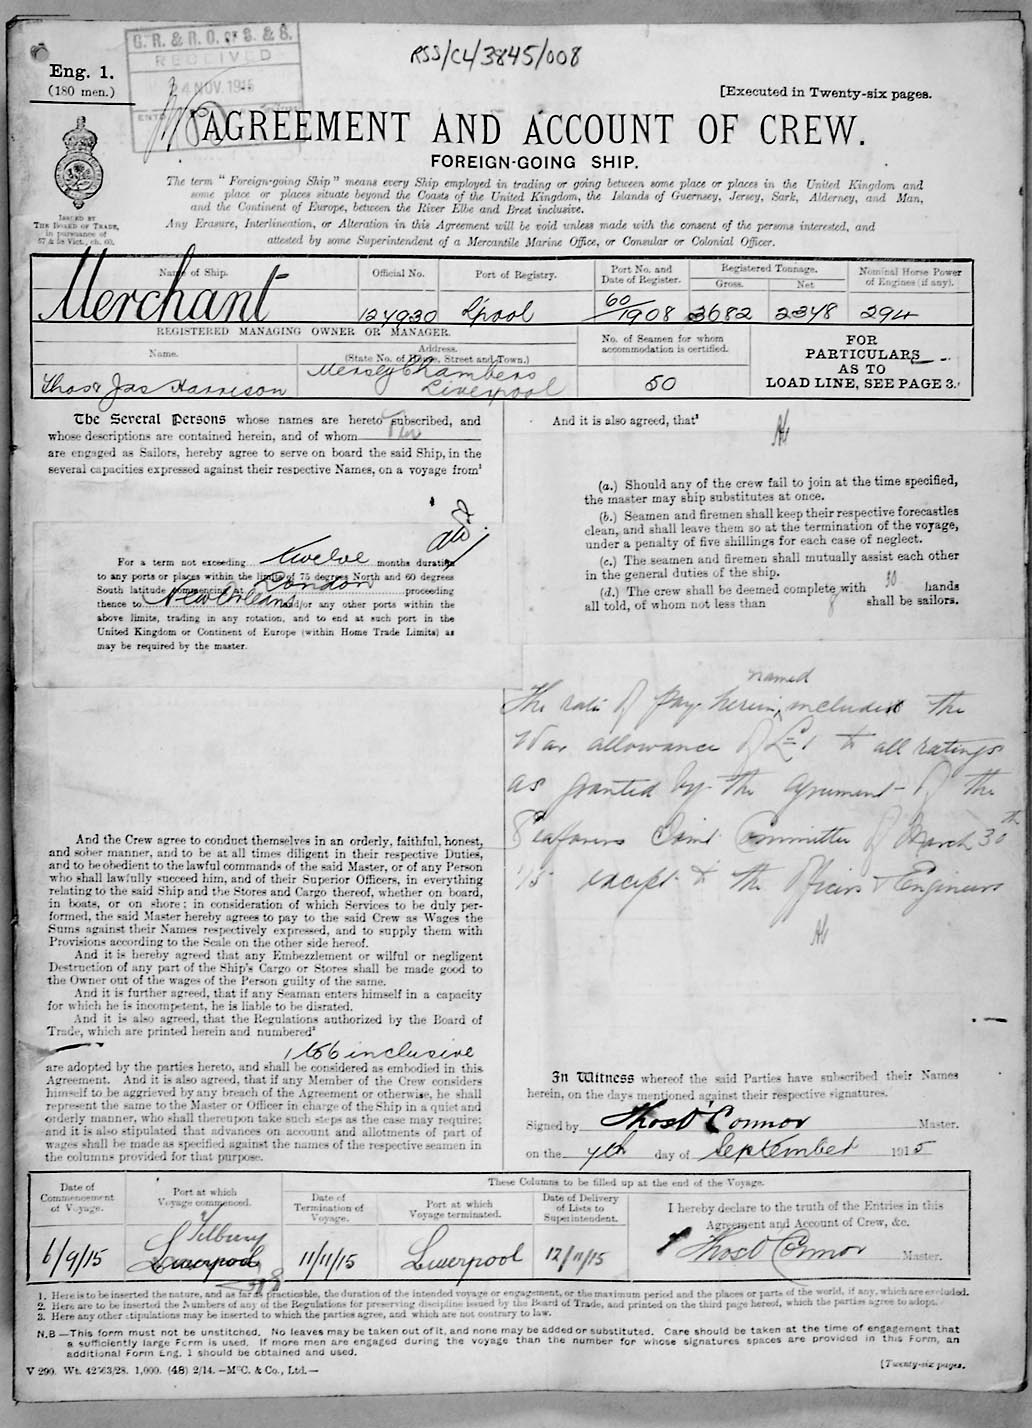 RSS/CL/3845/008
G. R. & R. O. of S. & S.
RECEIVED
24 NOV. 1915
Eng. 1.
(180 men.)
[Executed in Twenty-six pages.
AGREEMENT AND ACCOUNT OF CREW.
FOREIGN-GOING SHIP.
The term "Foreign-going Ship" means every Ship employed in trading or going between some place or places in the United Kingdom and
some place or places situate beyond the Coasts of the United Kingdom, the Islands of Guernsey, Jersey, Sark, Alderney, and Man,
and the Continent of Europe, between the River Elbe and Brest inclusive.
Any Erasure, Interlineation, or Alteration in this Agreement will be void unless made with the consent of the persons interested, and
attested by some Superintendent of a Mercantile Marine Office, or Consular or Colonial Officer.
ISSUED BY
THE BOARD OF TRADE,
in pursuance of
57 & 58 Vict., ch. 60.
Name of Ship.
Official No.
Port of Registry.
Port No. and
Date of Register.
Registered Tonnage.
Gross.
Net
Nominal Horse Power
of Engines (if any).
Merchant
124930
L'pool
60/1908
3682
2348
294
REGISTERED MANAGING OWNER OR MANAGER.
Name.
Address.
(State No. of House, Street and Town.)
No. of Seamen for whom
accommodation is certified.
FOR
PARTICULARS
AS TO
LOAD LINE, SEE PAGE 3.
Thos & Jas Harrison
Mersey Chambers
Liverpool
50
The Several Persons whose names are hereto subscribed, and
whose descriptions are contained herein, and of whom
are engaged as Sailors, hereby agree to serve on board the said Ship, in the
several capacities expressed against their respective Names, on a voyage from¹
For a term not exceeding twelve months duration
to any ports or places within the limits of 75 degrees North and 60 degrees
South latitude commencing at London proceeding
thence to New Orleans and/or any other ports within the
above limits, trading in any rotation, and to end at such port in the
United Kingdom or Continent of Europe (within Home Trade Limits) as
may be required by the master.
And the Crew agree to conduct themselves in an orderly, faithful, honest,
and sober manner, and to be at all times diligent in their respective Duties,
and to be obedient to the lawful commands of the said Master, or of any Person
who shall lawfully succeed him, and of their Superior Officers, in everything
relating to the said Ship and the Stores and Cargo thereof, whether on board,
in boats, or on shore; in consideration of which Services to be duly per-
formed, the said Master hereby agrees to pay to the said Crew as Wages the
Sums against their Names respectively expressed, and to supply them with
Provisions according to the Scale on the other side hereof.
And it is hereby agreed that any Embezzlement or wilful or negligent
Destruction of any part of the Ship's Cargo or Stores shall be made good to
the Owner out of the wages of the Person guilty of the same.
And it is further agreed, that if any Seaman enters himself in a capacity
for which he is incompetent, he is liable to be disrated.
And it is also agreed, that the Regulations authorized by the Board of
Trade, which are printed herein and numbered²
inclusive
are adopted by the parties hereto, and shall be considered as embodied in this
Agreement. And it is also agreed, that if any Member of the Crew considers
himself to be aggrieved by any breach of the Agreement or otherwise, he shall
represent the same to the Master or Officer in charge of the Ship in a quiet and
orderly manner, who shall thereupon take such steps as the case may require;
and it is also stipulated that advances on account and allotments of part of
wages shall be made as specified against the names of the respective seamen in
the columns provided for that purpose.
And it is also agreed, that³
(a.) Should any of the crew fail to join at the time specified,
the master may ship substitutes at once.
(b.) Seamen and firemen shall keep their respective forecastles
clean, and shall leave them so at the termination of the voyage,
under a penalty of five shillings for each case of neglect.
(c.) The seamen and firemen shall mutually assist each other
in the general duties of the ship.
(d.) The crew shall be deemed complete with 30 hands
all told, of whom not less than 8 shall be sailors.
named
The rate of pay herein included the
War allowance of £1 to all ratings
as granted by the agreement of the
Seafarers Joint Committee of March 30th
1/5 except to the Officers & Engineers
In Witness whereof the said Parties have subscribed their Names
herein, on the days mentioned against their respective signatures.
Signed by Thos O'Connor Master.
on the 4th day of September 1915
These Columns to be filled up at the end of the Voyage.
Date of
Commencement
of Voyage.
Port at which
Voyage commenced.
Date of
Termination of
Voyage.
Port at which
Voyage terminated.
Date of Delivery
of Lists to
Superintendent.
I hereby declare to the truth of the Entries in this
Agreement and Account of Crew, &c.
6/9/15
Tilbury
Liverpool
11/11/15
Liverpool
12/11/15
Thos O'Connor Master.
1. Here is to be inserted the nature, and as far as practicable, the duration of the intended voyage or engagement, or the maximum period and the places or parts of the world, if any, which are excluded.
2. Here are to be inserted the Numbers of any of the Regulations for preserving discipline issued by the Board of Trade, and printed on the third page hereof, which the parties agree to adopt.
3. Here any other stipulations may be inserted to which the parties agree, and which are not contrary to law.
N.B—This form must not be unstitched. No leaves may be taken out of it, and none may be added or substituted. Care should be taken at the time of engagement that
a sufficiently large Form is used. If more men are engaged during the voyage than the number for whose signatures spaces are provided in this Form, an
additional Form Eng. 1 should be obtained and used.
V 290. Wt. 42763/28. 1,000. (48) 2/14. —McC. & Co., Ltd.—
[Twenty-six pages.